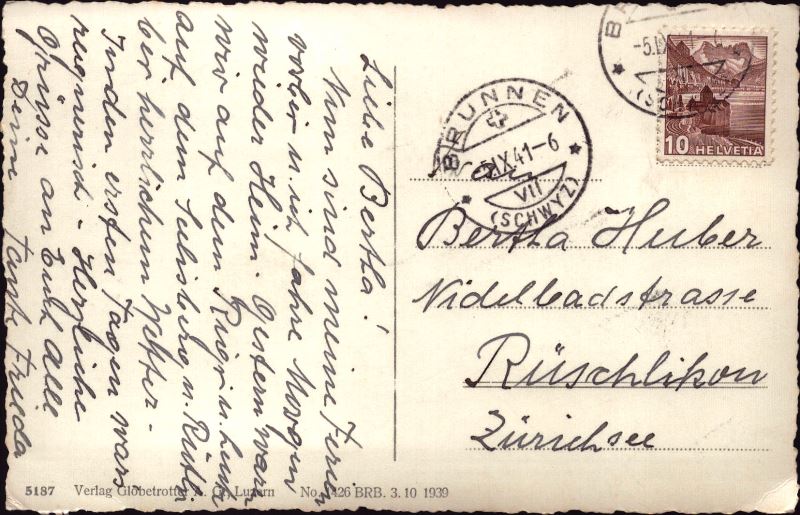 Liebe Bertha!
Nun sind meine Ferien
vorbei u. ich fahre Morgen
wieder Heim. Gestern waren
wir auf dem Rigi u. heute
auf dem Selisberg u. Rütli
bei herrlichem Wetter.
In den ersten Tagen wars
regnerisch. Herzliche
Grüsse an Euch Alle
Deine Tante Frieda
BRUNNEN
-5.IX.41-6
VII
(SCHWYZ)
10 HELVETIA
Bertha Huber
Nidelbadstrasse
Rüschlikon
Zürichsee
5187 Verlag Globetrotter A. G. Luzern No. 1426 BRB. 3. 10 1939